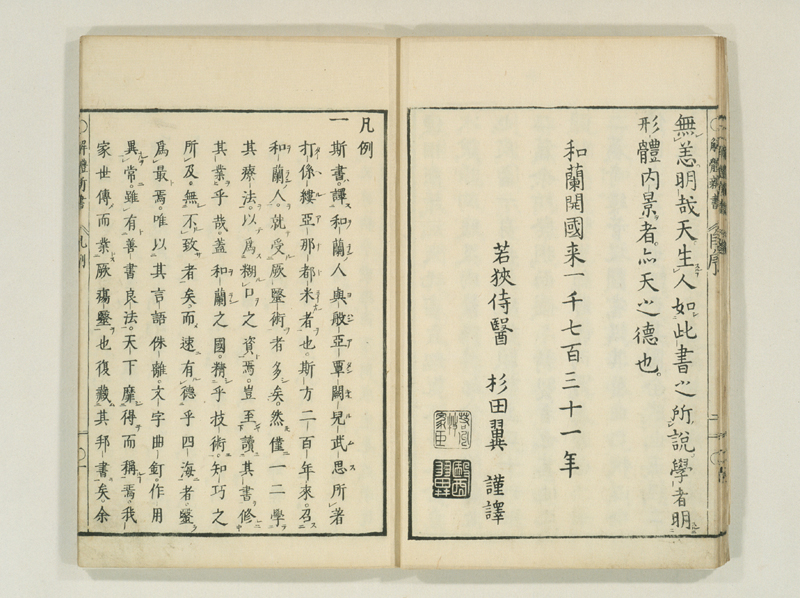 無恙明哉天生人如此書之所説學者明
形體内景者亦天之德也
和蘭開國来一千七百三十一年
若狹侍醫 杉田翼 謹譯
凡例
一斯書譯和蘭人與般亞覃闕兒武思所著
打係縷亞那都米者也斯方二百年來召
和蘭人就受厥毉術者多矣然僅一二學
其療法以爲糊口之資焉豈至讀其書修
其業乎哉蓋和蘭之國精乎技術知巧之
所及無不致者矣而速有德乎四海者毉
爲最焉唯以其言語侏離文字曲釘作用
異常雖有善書良法天下靡得而稱焉我
家世傳而業厥瘍毉也復藏其邦書矣余
解體新書 凡例